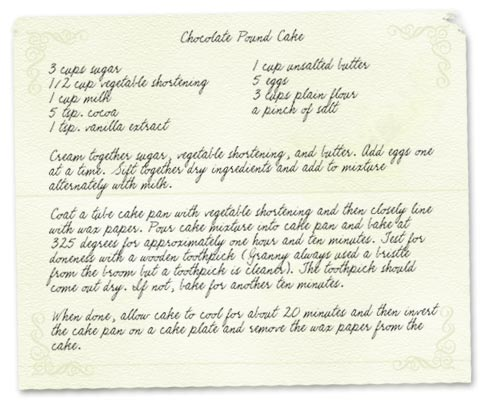 Chocolate Pound Cake
3 cups sugar
1/2 cup vegetable shortening
1 cup milk
5 tsp. cocoa
1 tsp. vanilla extract
1 cup unsalted butter
5 eggs
3 cups plain flour
a pinch of salt
Cream together sugar, vegetable shortening, and butter. Add eggs one
at a time. Sift together dry ingredients and add to mixture
alternately with milk.
Coat a tube cake pan with vegetable shortening and then closely line
with wax paper. Pour cake mixture into cake pan and bake at
325 degrees for approximately one hour and ten minutes. Test for
doneness with a wooden toothpick (Granny always used a bristle
from the broom but a toothpick is cleaner). The toothpick should
come out dry. If not, bake for another ten minutes.
When done, allow cake to cool for about 20 minutes and then invert
the cake pan on a cake plate and remove the wax paper from the
cake.